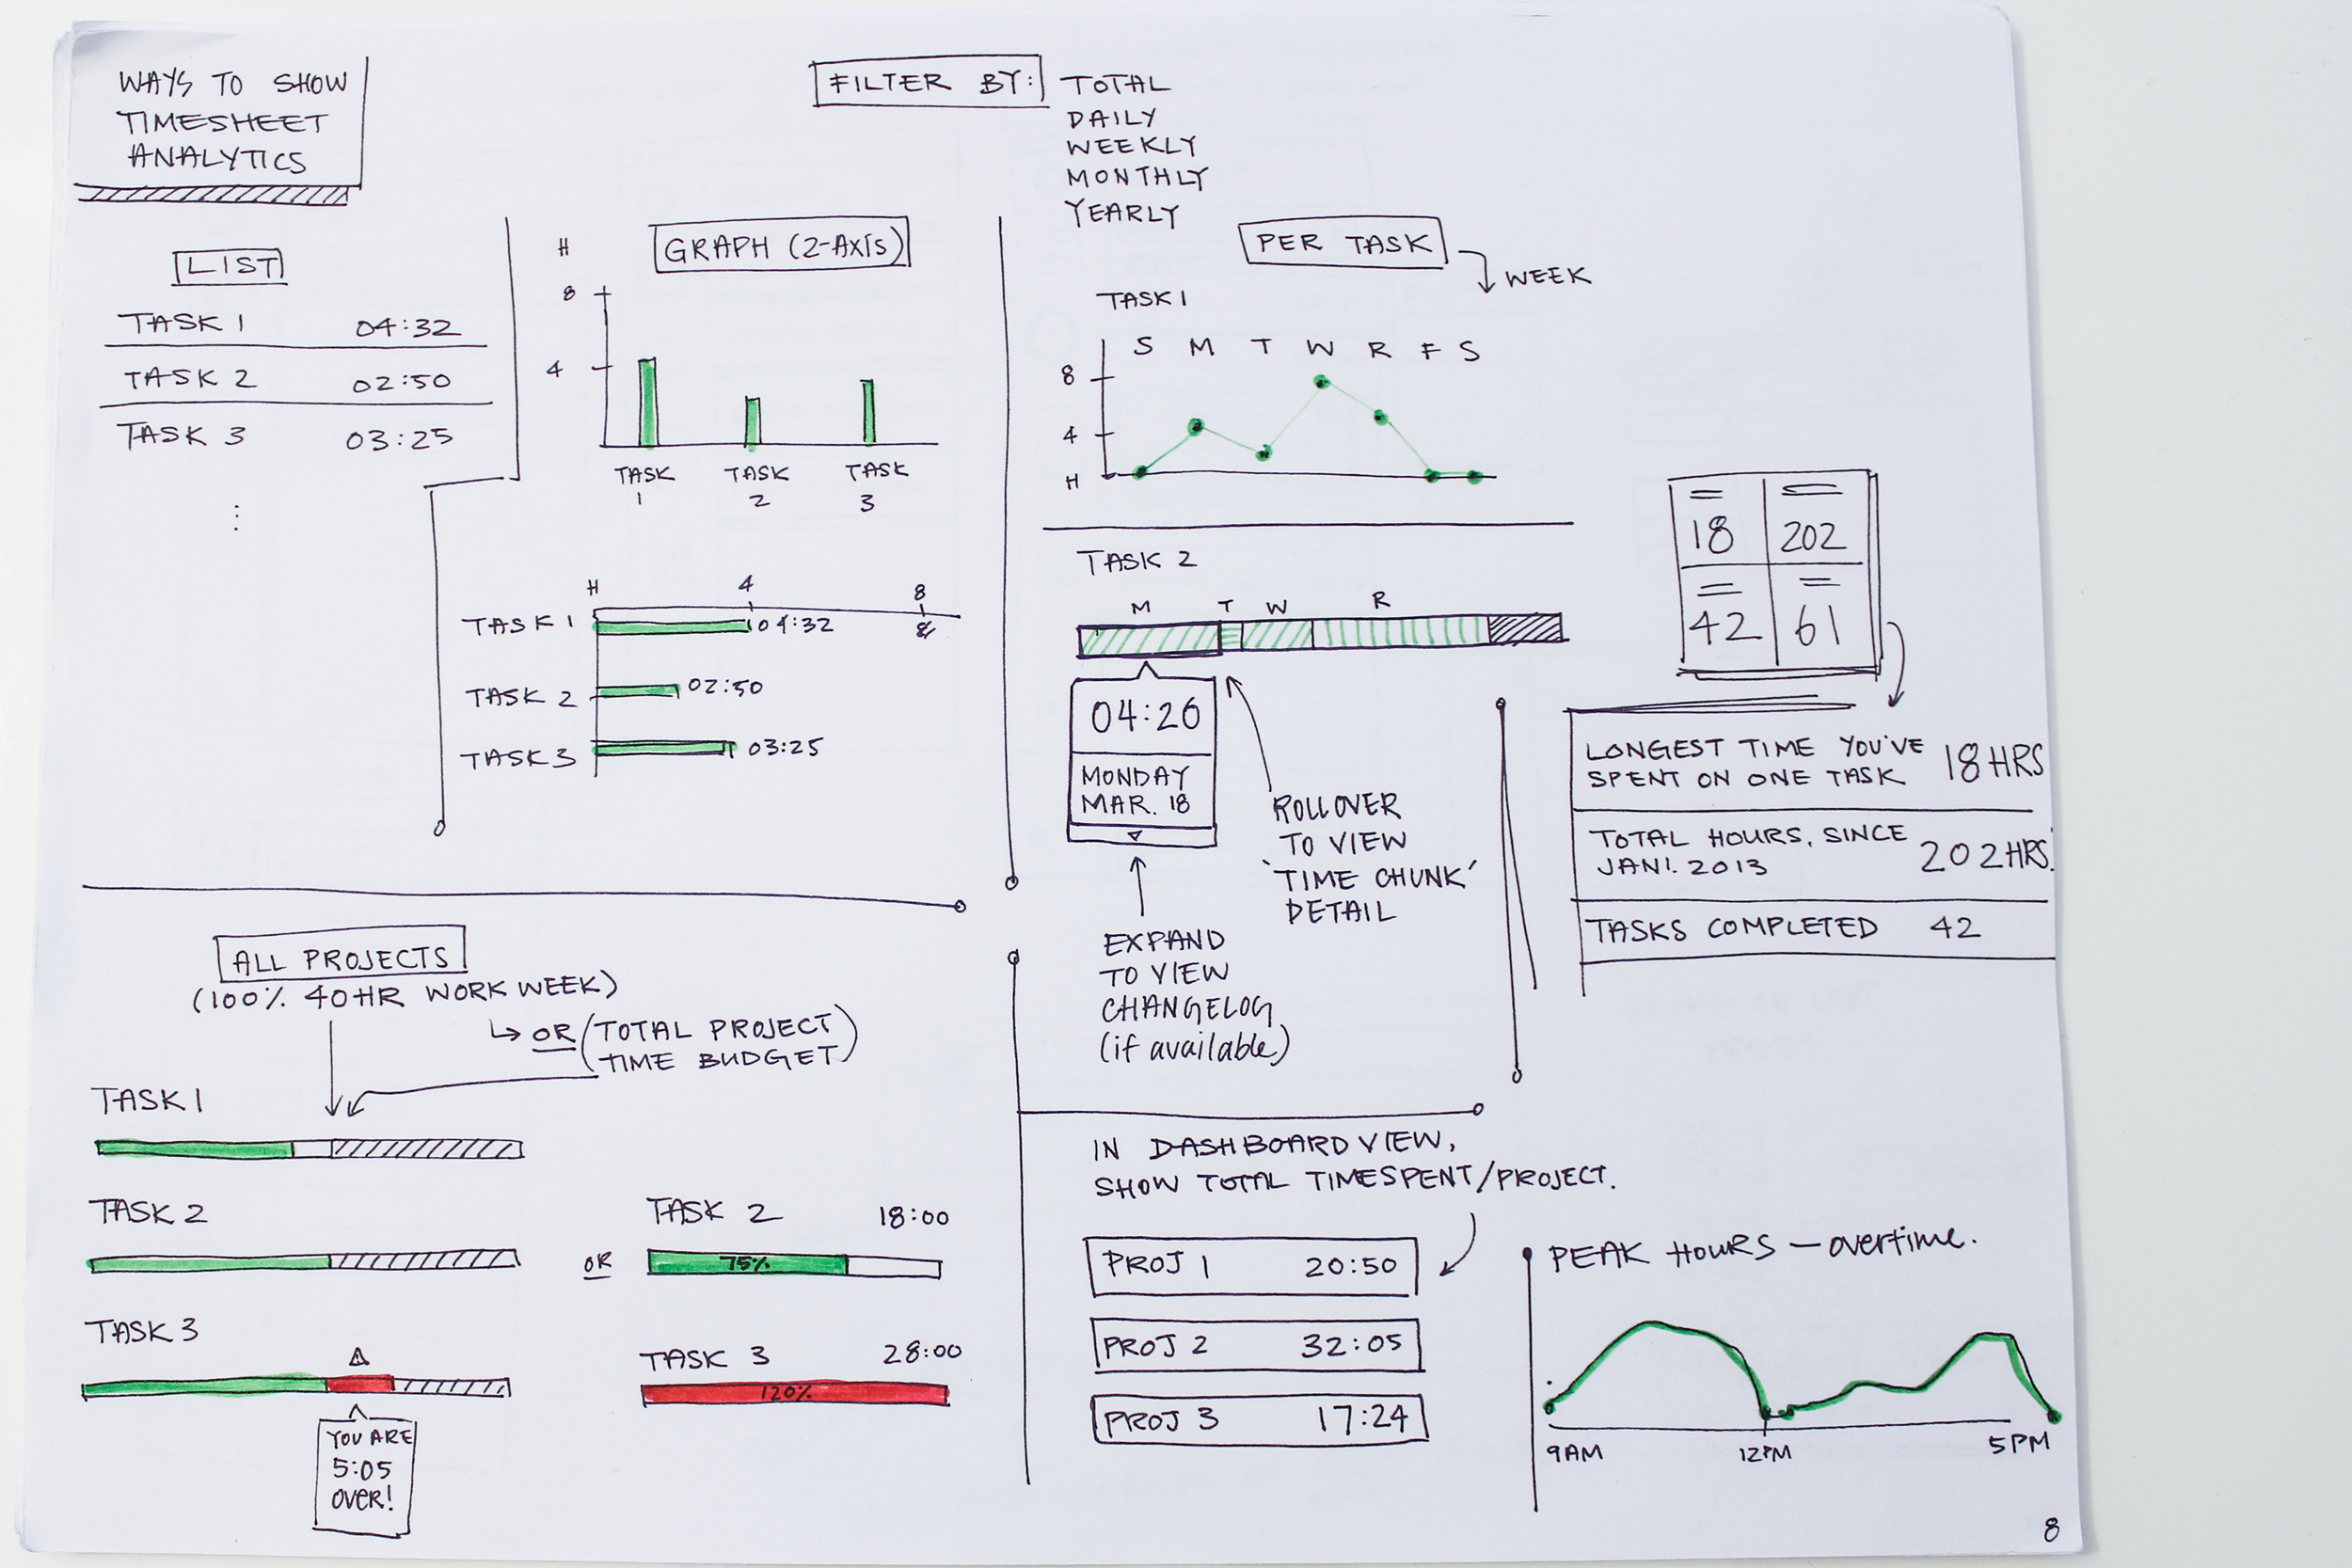 WAYS TO SHOW
TIMESHEET
ANALYTICS
FILTER BY:
TOTAL
DAILY
WEEKLY
MONTHLY
YEARLY
LIST
TASK 1 04:32
TASK 2 02:50
TASK 3 03:25
...
GRAPH (2-AXIS)
H
8
4
TASK 1
TASK 2
TASK 3
H 4 8
8
TASK 1 04:32
TASK 2 02:50
TASK 3 03:25
PER TASK
WEEK
TASK 1
S M T W R F S
8
4
H
TASK 2
M T W R
04:26
MONDAY
MAR. 18
ROLLOVER
TO VIEW
'TIME CHUNK'
DETAIL
EXPAND
TO VIEW
CHANGELOG
(if available)
18 202
42 61
LONGEST TIME YOU'VE
SPENT ON ONE TASK 18 HRS
TOTAL HOURS, SINCE
JAN 1. 2013 202 HRS.
TASKS COMPLETED 42
ALL PROJECTS
(100% 40HR WORK WEEK)
OR (TOTAL PROJECT
TIME BUDGET)
TASK 1
TASK 2
OR
TASK 2 18:00
75%
TASK 3
YOU ARE
5:05
OVER!
TASK 3 28:00
120%
IN DASHBOARD VIEW,
SHOW TOTAL TIME SPENT/PROJECT.
PROJ 1 20:50
PROJ 2 32:05
PROJ 3 17:24
PEAK HOURS — overtime.
9AM 12PM 5PM
8